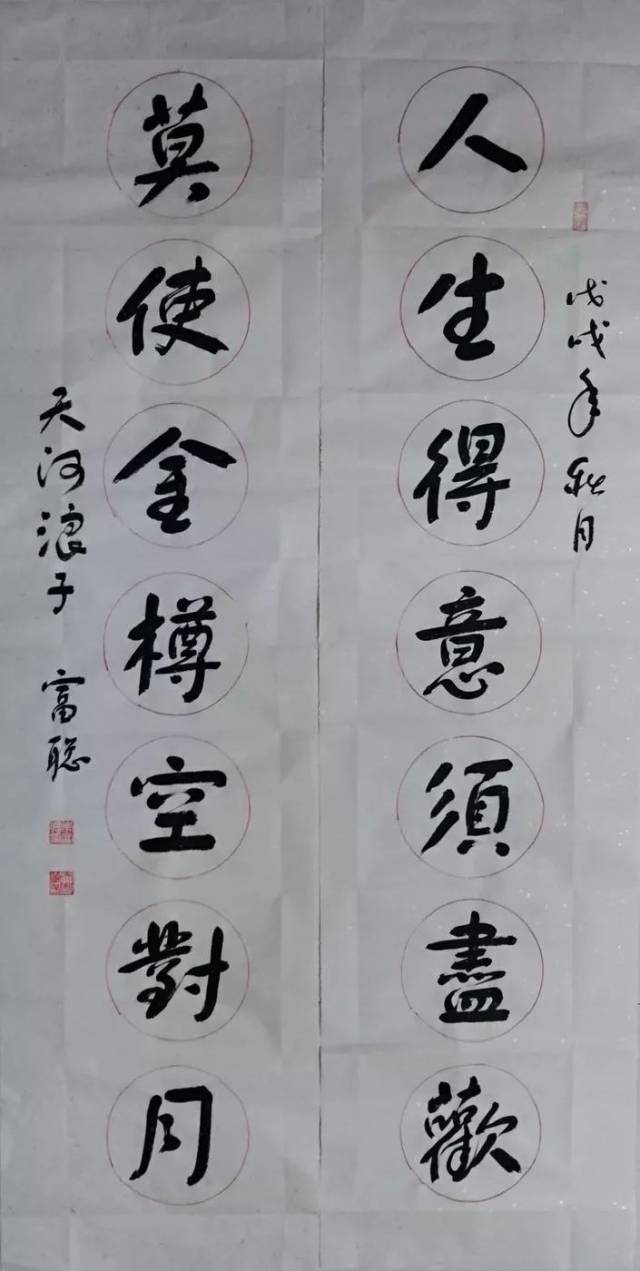 戊戌年秋月
人生得意須盡歡
莫使金樽空對月
天河浪子 富聪